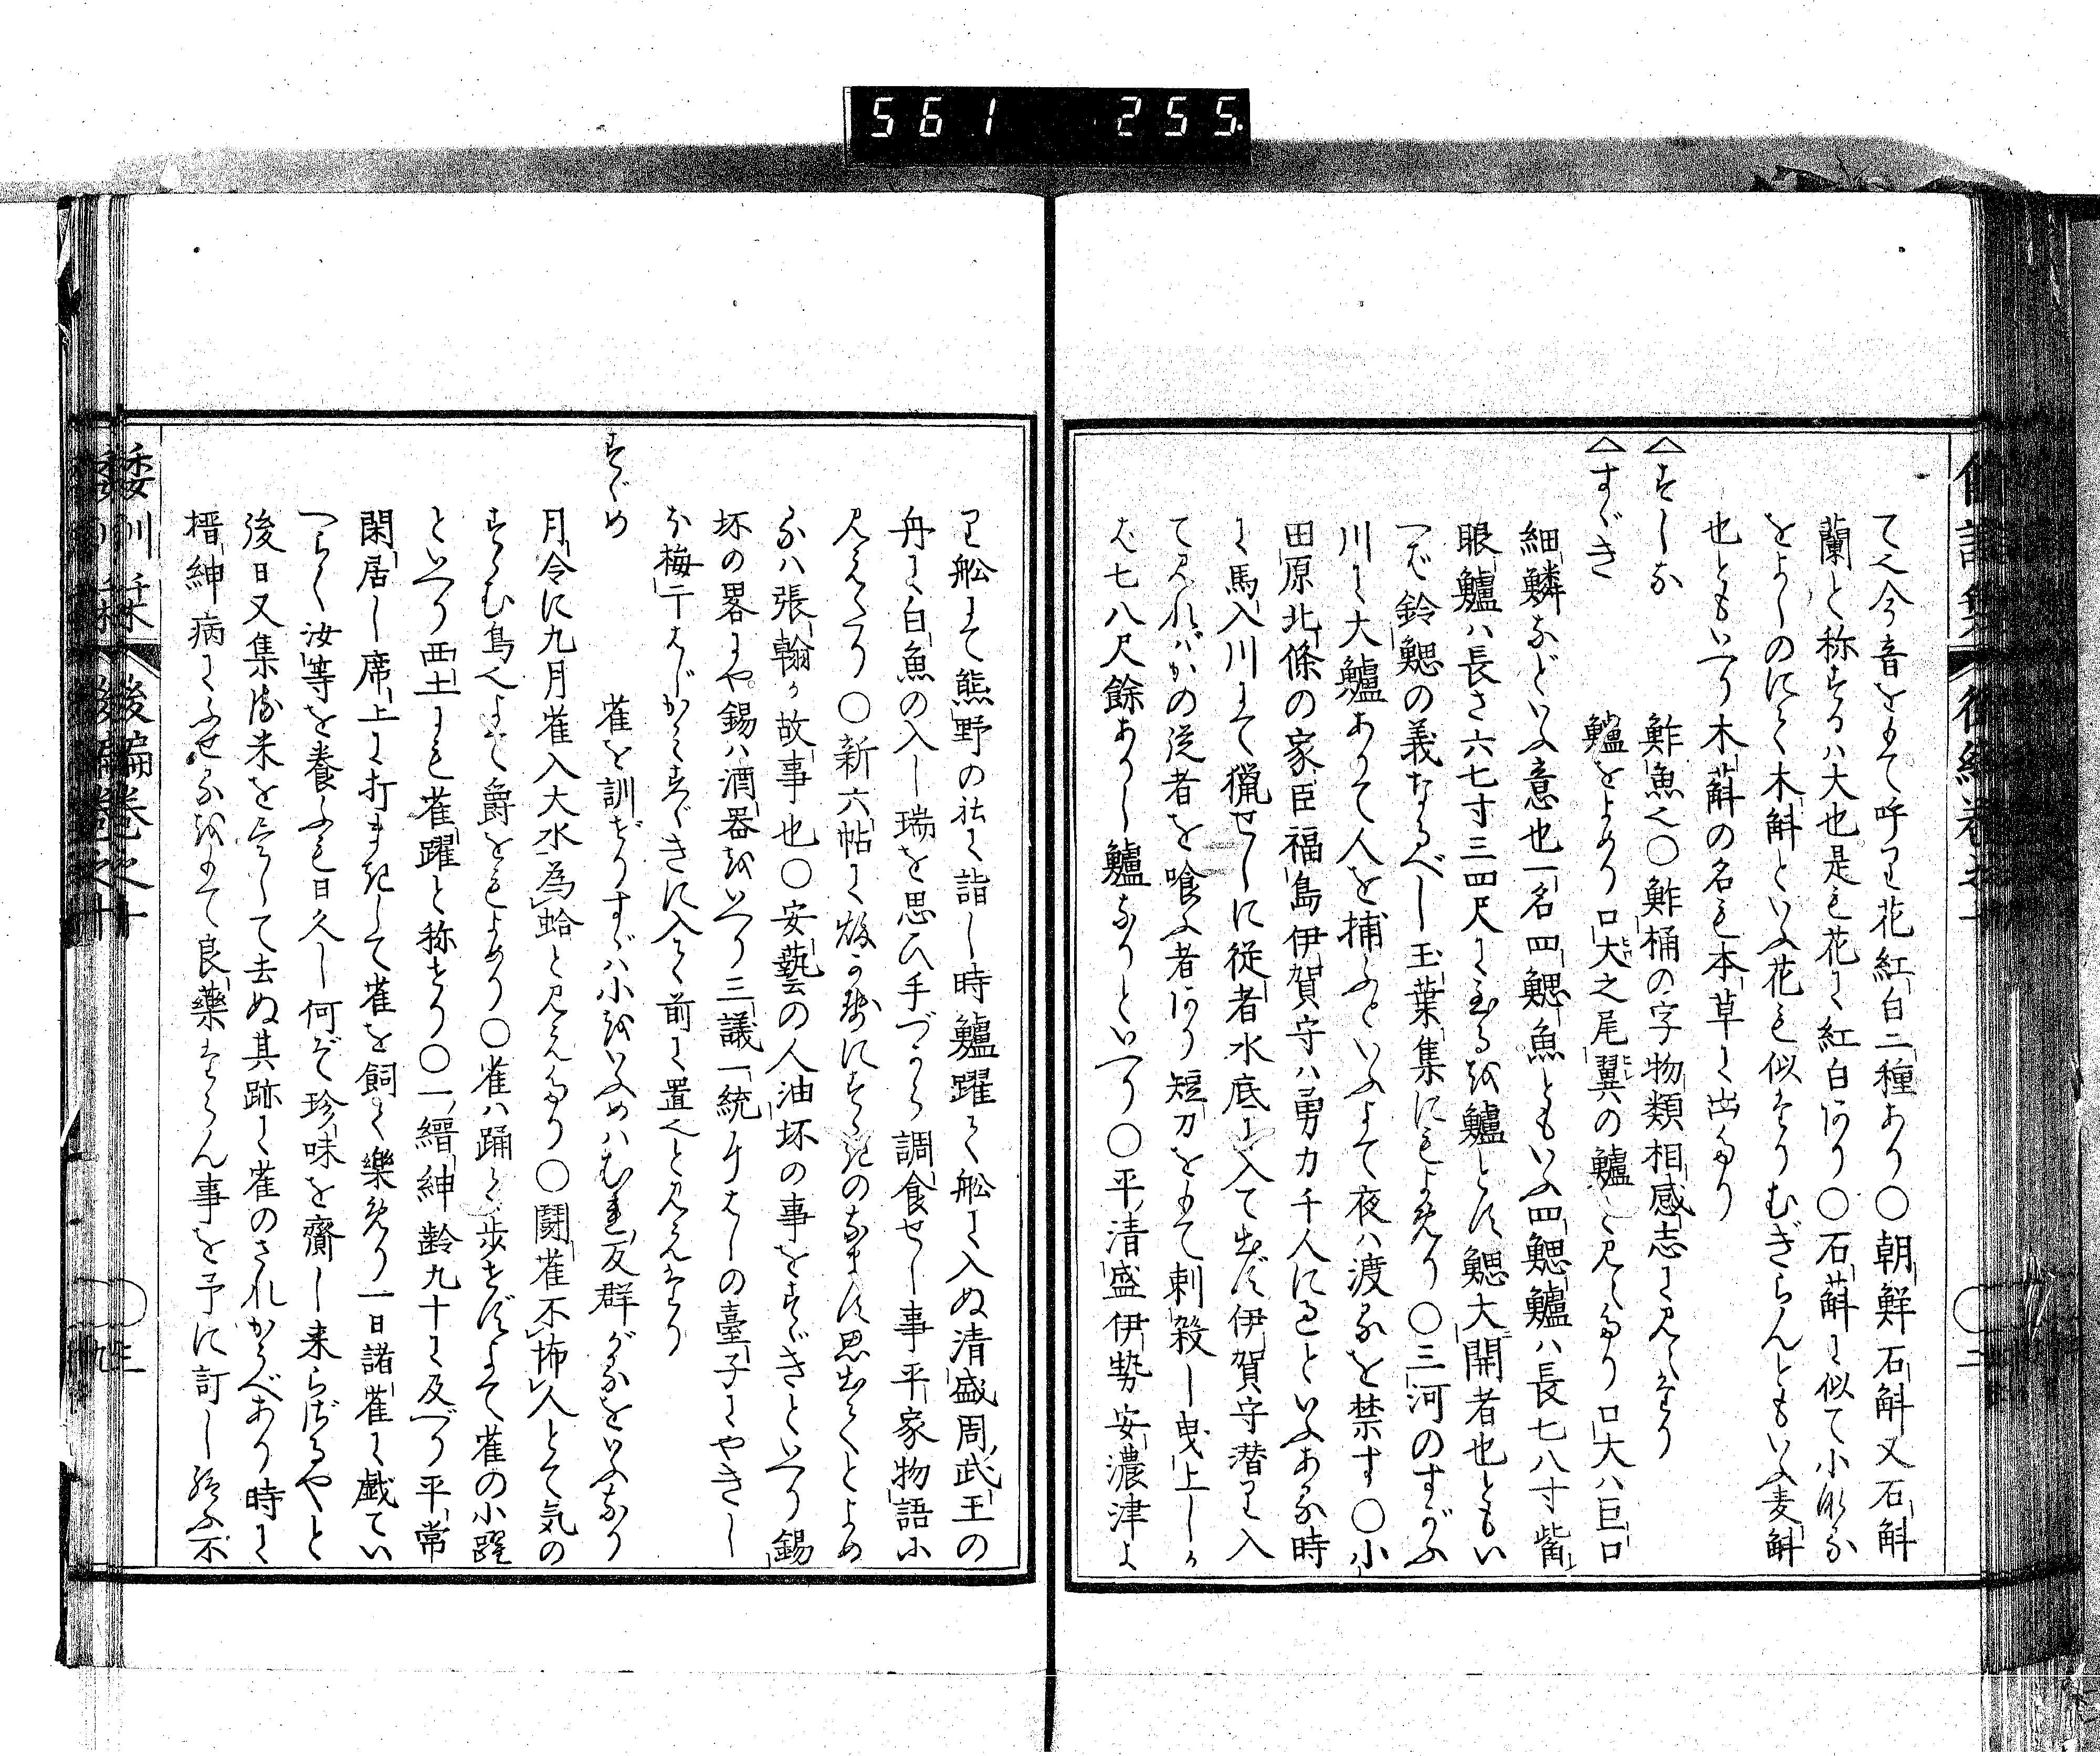 561 255
て也今音をもて呼り花紅白二種あり〇朝鮮石斛又石斛
蘭と称するハ大也是も花に紅白あり〇石斛に似て小なる
をよしのにて木斛といふ花も似たりむぎらんともいふ麦斛
也ともいへり木斛の名も本草に出たり
△すしな 鮓魚也〇鮓桶の字物類相感志に見えたり
△すゞき 鱸をよめり口大之尾翼の鱸と見えたり口大ハ巨口
細鱗などいふ意也一名四鰓魚ともいふ四鰓鱸ハ長七八寸觜
眼鱸ハ長さ六七寸三四尺に至るを鱸とす鰓大開者也ともい
へば鈴鰓の義なるべし玉葉集にもよめり〇三河のすがふ
川に大鱸ありて人を捕ふといふよて夜ハ渡るを禁す〇小
田原北條の家臣福島伊賀守ハ勇力千人に過といふある時
に馬入川にて猟せしに従者水底に入て出ず伊賀守潜り入
て見れバかの従者を喰ふ者あり短刀をもて刺殺し曳上しか
ば七八尺餘あるし鱸なりといへり〇平清盛伊勢安濃津よ
り舩にて熊野の社に詣し時鱸躍て舩に入ぬ清盛周武王の
舟に白魚の入し瑞を思ひ手づから調食せし事平家物語に
見えたり〇新六帖に
るハ張翰か故事也〇安藝の人油坏の事をすゞきといへり錫
坏の畧にや錫ハ酒器をいへり三議一統にはしの臺子にやきし
ほ梅干はじかミすゞきに入て前に置也と見えたり
すゞめ 雀を訓ぜりすゞハ小をいふめハむれ反群がるをいふなり
月令に九月雀入大水為蛤と見えたり〇闘雀不怖人とて気の
すゝむ鳥也よて爵をもよめり〇雀ハ踊て歩せずよて雀の小躍
といへり西土にも雀躍と称せり〇一縉紳齢九十に及べり平常
閑居し席上に打まきして雀を飼て樂めり一日諸雀に戯てい
へらく汝等を養ふも日久し何ぞ珍味を齎し来らざるやと
後日又集り米を喰して去ぬ其跡に雀のされかうべあり時に
搢紳病にふせるをもて良藥ならん事を予に訂し給ふ不
倭訓栞 後編巻之十 三
後編巻之十 二